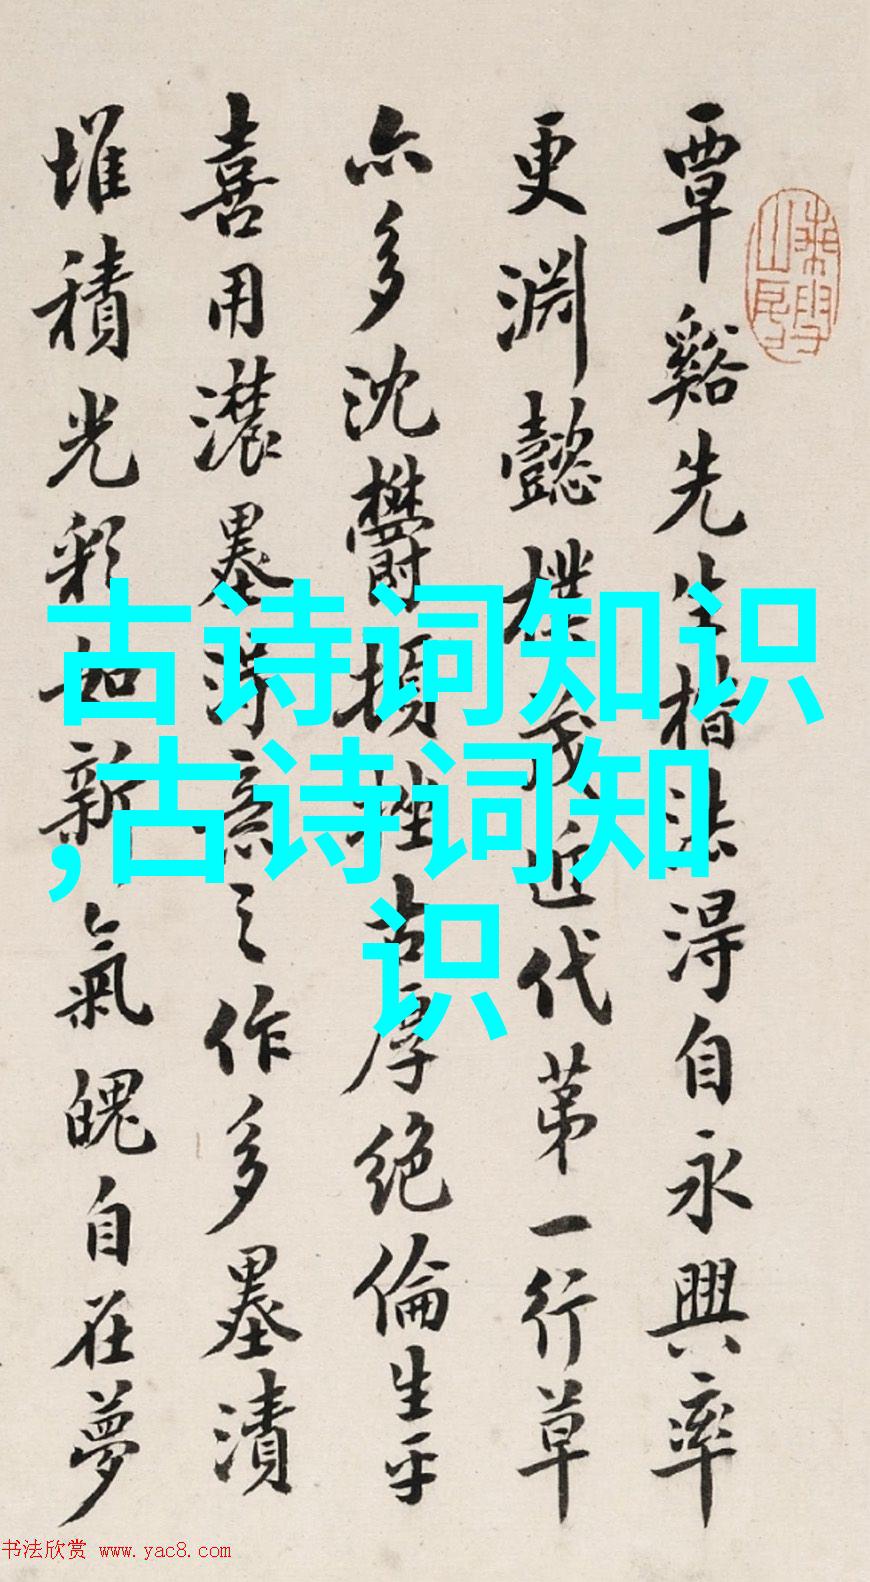 覃谿先生楷法得自永興率
更淵懿樸茂近代第一行草
亦多沈欝頓挫古厚絶倫生平
喜用濃墨得意之作多墨漬
堆積光彩如新氣魄自在夢
古诗词知识
,古诗词知
识
书法欣赏 www.yac8.com